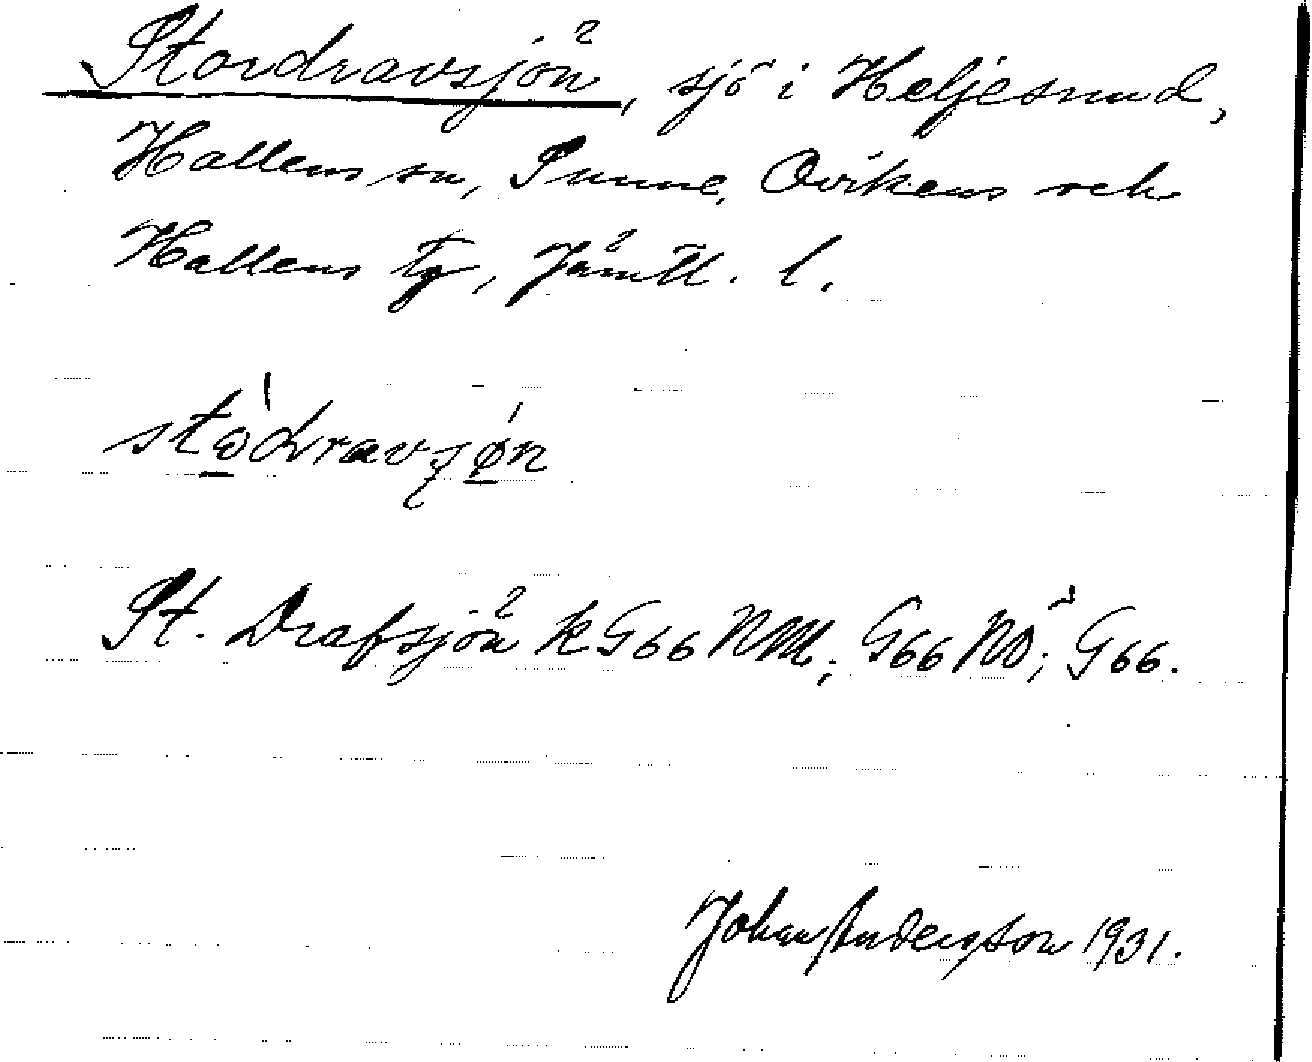 Stordravsjön, sjö i Heljesund,
Hallens sn, Sunne, Ovikens och
Hallens tg, Jämtl. l.
stὼ̱dravʃǿ̱n
St. Drafsjön k G66 NM; G66 NÖ; G66.
Johan Anderson 1931.